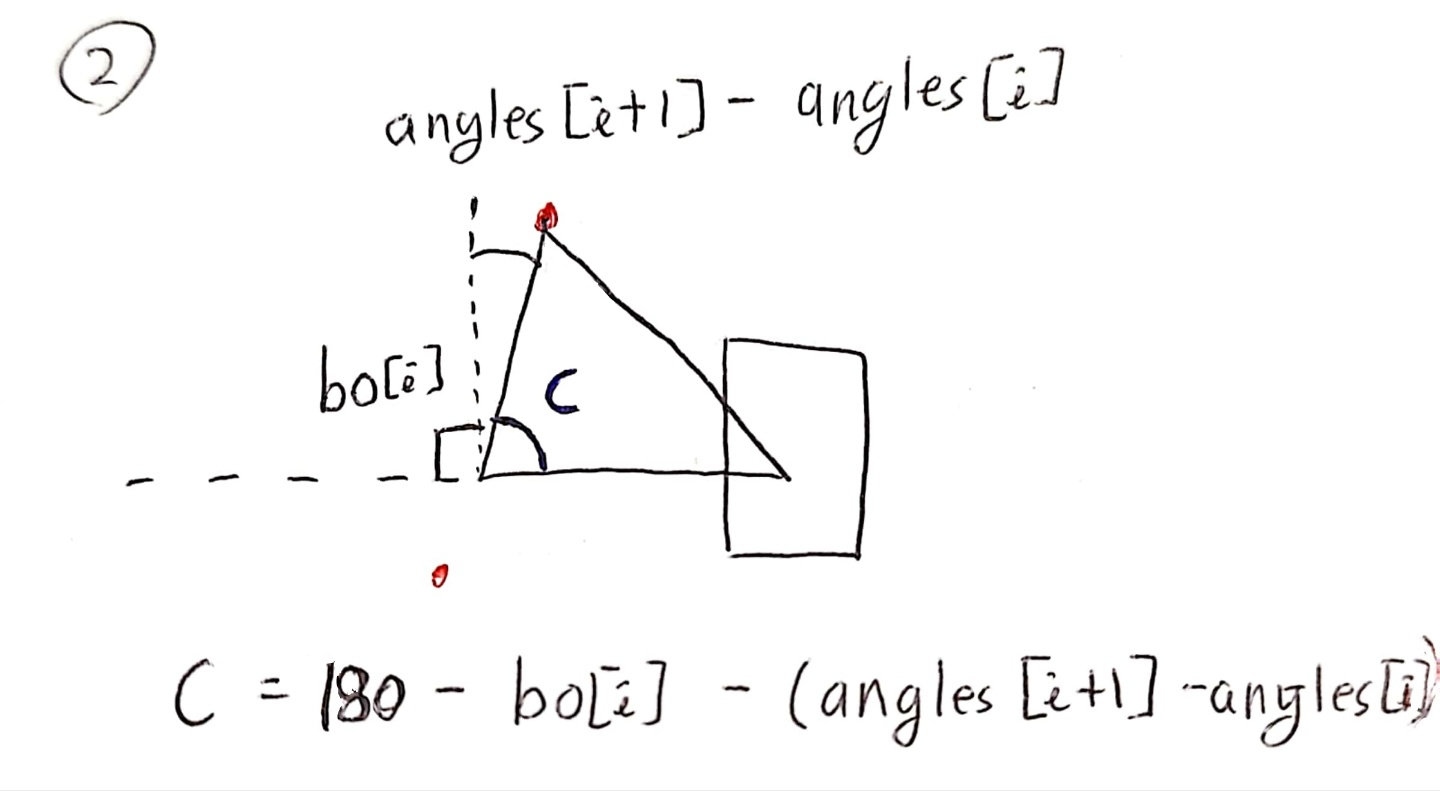 2
angles [i+1] - angles [i]
bo[i]
C
C = 180 - bo[i] - (angles [i+1] - angles[i])